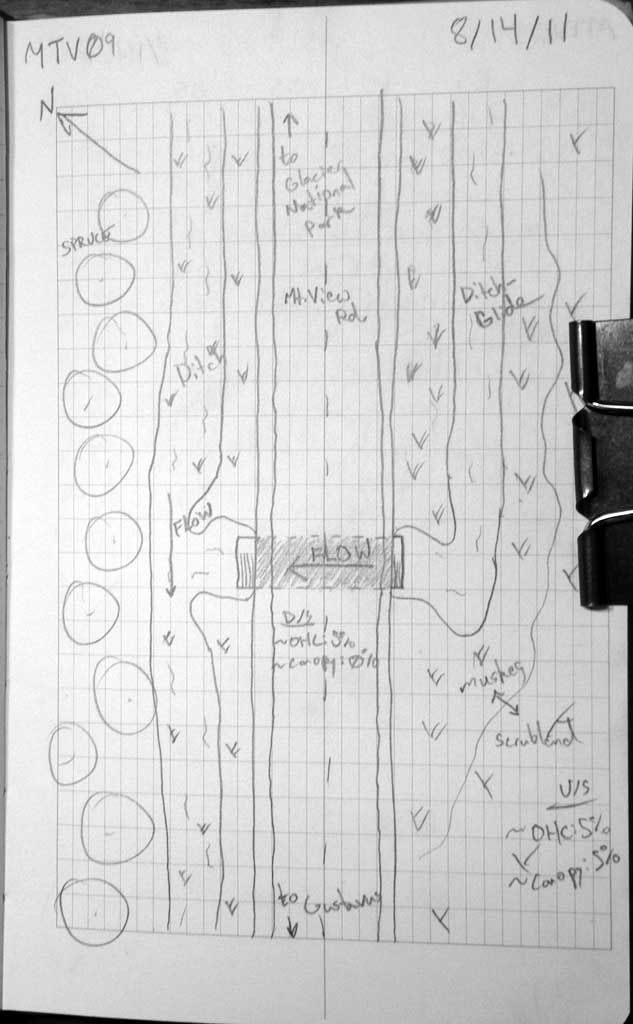 MTV09
8/14/11
N
to
Glacier
National
Park
SPRUCE
Mt. View
Rd.
Ditch-
Glide
Ditch
FLOW
FLOW
D/S
~OHC: 5%
~canopy: 0%
muskeg
scrubland
U/S
~OHC: 5%
~canopy: 5%
to Gustavus